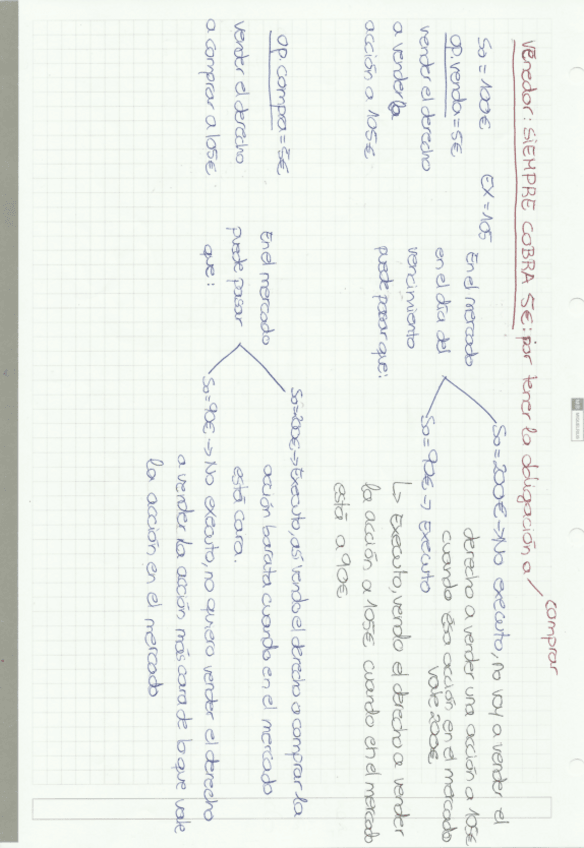 Venedor: SIEMPRE COBRA 5€: por tener la obligación a / comprar
So = 100€ EX = 105
op. venda = 5€
vender el derecho
a vender la
acción a 105€
En el mercado
en el día del
vencimiento
puede pasar que:
So = 200€ → No executo, no voy a vender el
derecho a vender una acción a 105€
cuando esa acción en el mercado
vale 200€
So = 90€ → Executo
↳ Executo, vendo el derecho a vender
la acción a 105€ cuando en el mercado
está a 90€
op. compra = 5€
vender el derecho
a comprar a 105€
En el mercado
puede pasar
que:
So = 200€ → Executo, así vendo el derecho a comprar la
acción barata cuando en el mercado
está cara.
So = 90€ → No executo, no quiero vender el derecho
a vender la acción más cara de lo que vale
la acción en el mercado